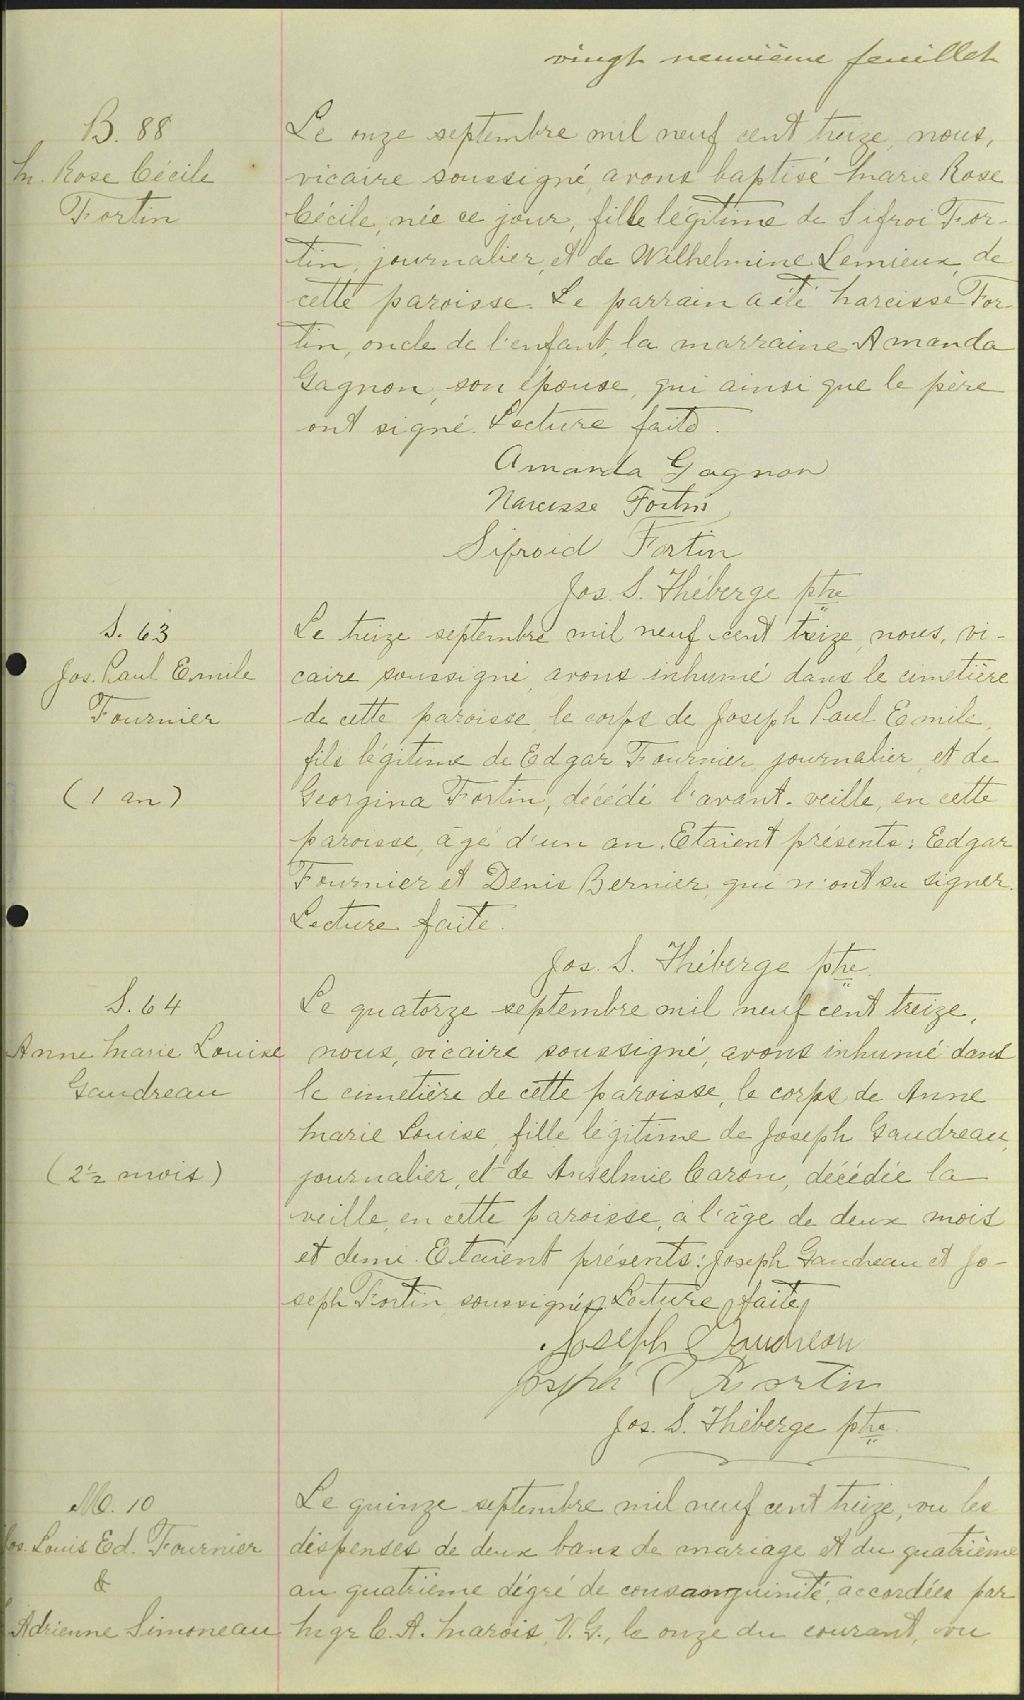 vingt neuvième feuillet
B. 88
M. Rose Cécile
Fortin
Le onze septembre mil neuf cent treize, nous,
vicaire soussigné, avons baptisé Marie Rose
Cécile, née ce jour, fille légitime de Sifroi For-
tin, journalier, et de Wilhelmine Lemieux, de
cette paroisse. Le parrain a été Narcisse For-
tin, oncle de l'enfant, la marraine Amanda
Gagnon, son épouse, qui ainsi que le père
ont signé. Lecture faite.
Amanda Gagnon
Narcisse Fortin
Sifroid Fortin
Jos. S. Théberge ptre
S. 63
Jos. Paul Emile
Fournier
(1 an)
Le treize septembre mil neuf cent treize, nous, vi-
caire soussigné, avons inhumé dans le cimetière
de cette paroisse, le corps de Joseph Paul Emile,
fils légitime de Edgar Fournier, journalier, et de
Georgina Fortin, décédé l'avant-veille, en cette
paroisse, âgé d'un an. Etaient présents: Edgar
Fournier et Denis Bernier, qui n'ont su signer.
Lecture faite.
Jos. S. Théberge ptre.
S. 64
Anne Marie Louise
Gaudreau
(2½ mois)
Le quatorze septembre mil neuf cent treize,
nous, vicaire soussigné, avons inhumé dans
le cimetière de cette paroisse, le corps de Anne
Marie Louise, fille légitime de Joseph Gaudreau,
journalier, et de Anselmie Caron, décédée la
veille, en cette paroisse, à l'âge de deux mois
et demi. Etaient présents: Joseph Gaudreau et Jo-
seph Fortin, soussignés. Lecture faite.
Joseph Gaudreau
Joseph Fortin
Jos. S. Théberge ptre.
M. 10
Jos. Louis Ed. Fournier
&
Adrienne Simoneau
Le quinze septembre mil neuf cent treize, vu les
dispenses de deux bans de mariage et du quatrième
au quatrième dégré de consanguinité, accordées par
Mgr C. A. Marois, V. G., le onze du courant, vu